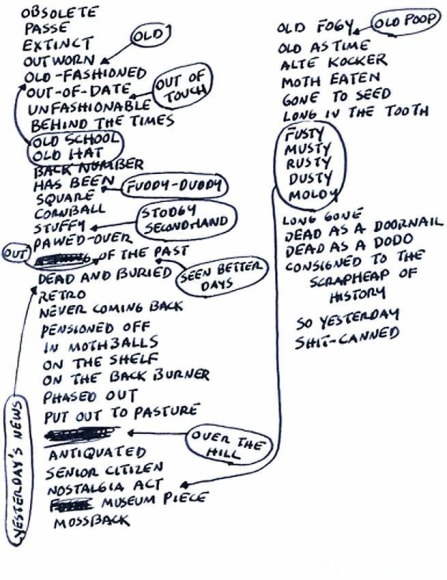 OBSOLETE
PASSE
EXTINCT
OUTWORN
OLD
OLD-FASHIONED
OUT-OF-DATE
OUT OF
TOUCH
UNFASHIONABLE
BEHIND THE TIMES
OLD SCHOOL
OLD HAT
BACK NUMBER
HAS BEEN
FUDDY-DUDDY
SQUARE
CORNBALL
STODGY
SECONDHAND
STUFFY
PAWED-OVER
OUT
OF THE PAST
DEAD AND BURIED
SEEN BETTER
DAYS
RETRO
NEVER COMING BACK
PENSIONED OFF
IN MOTHBALLS
ON THE SHELF
ON THE BACK BURNER
PHASED OUT
PUT OUT TO PASTURE
OVER THE
HILL
ANTIQUATED
SENIOR CITIZEN
NOSTALGIA ACT
MUSEUM PIECE
MOSSBACK
YESTERDAY'S NEWS
OLD FOGY
OLD POOP
OLD AS TIME
ALTE KOCKER
MOTH EATEN
GONE TO SEED
LONG IN THE TOOTH
FUSTY
MUSTY
RUSTY
DUSTY
MOLDY
LONG GONE
DEAD AS A DOORNAIL
DEAD AS A DODO
CONSIGNED TO THE
SCRAPHEAP OF
HISTORY
SO YESTERDAY
SHIT-CANNED